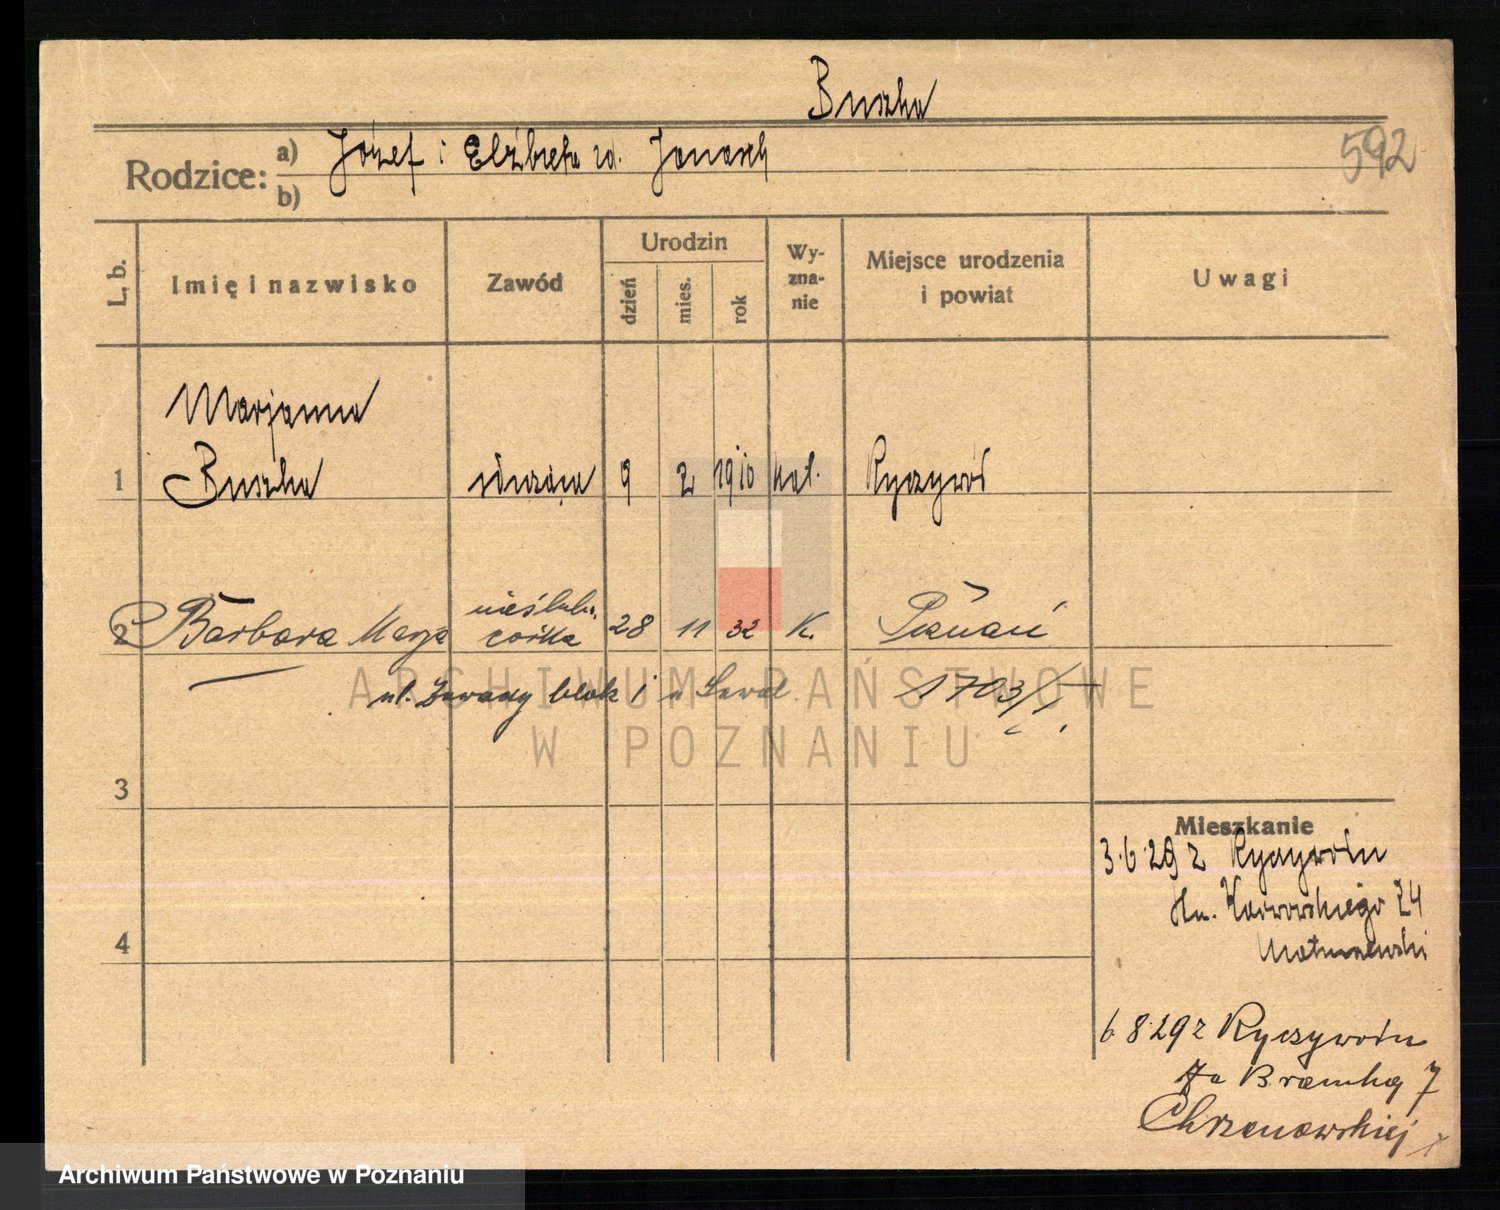 Buszka
592
Rodzice:
a) Józef i Elżbieta zd. Janasch
b)
L. b.
Imię i nazwisko
Zawód
Urodzin
dzień
mies.
rok
Wy-
zna-
nie
Miejsce urodzenia
i powiat
Uwagi
Marjanna
1 Buszka służąca 9 2 1910 kat. Ryczywół
nieślubn.
2 Barbara Marja córka 28 11 32 K. Poznań
ul. Zawady blok 1 1703/
3
Mieszkanie
3.6.29 z Ryczywołu
24
Matuszewski
4
6 8.29 z Ryczywołu
Za Bramką 7
Chrzanowskiej
ARCHIWUM PAŃSTWOWE
W POZNANIU
Archiwum Państwowe w Poznaniu